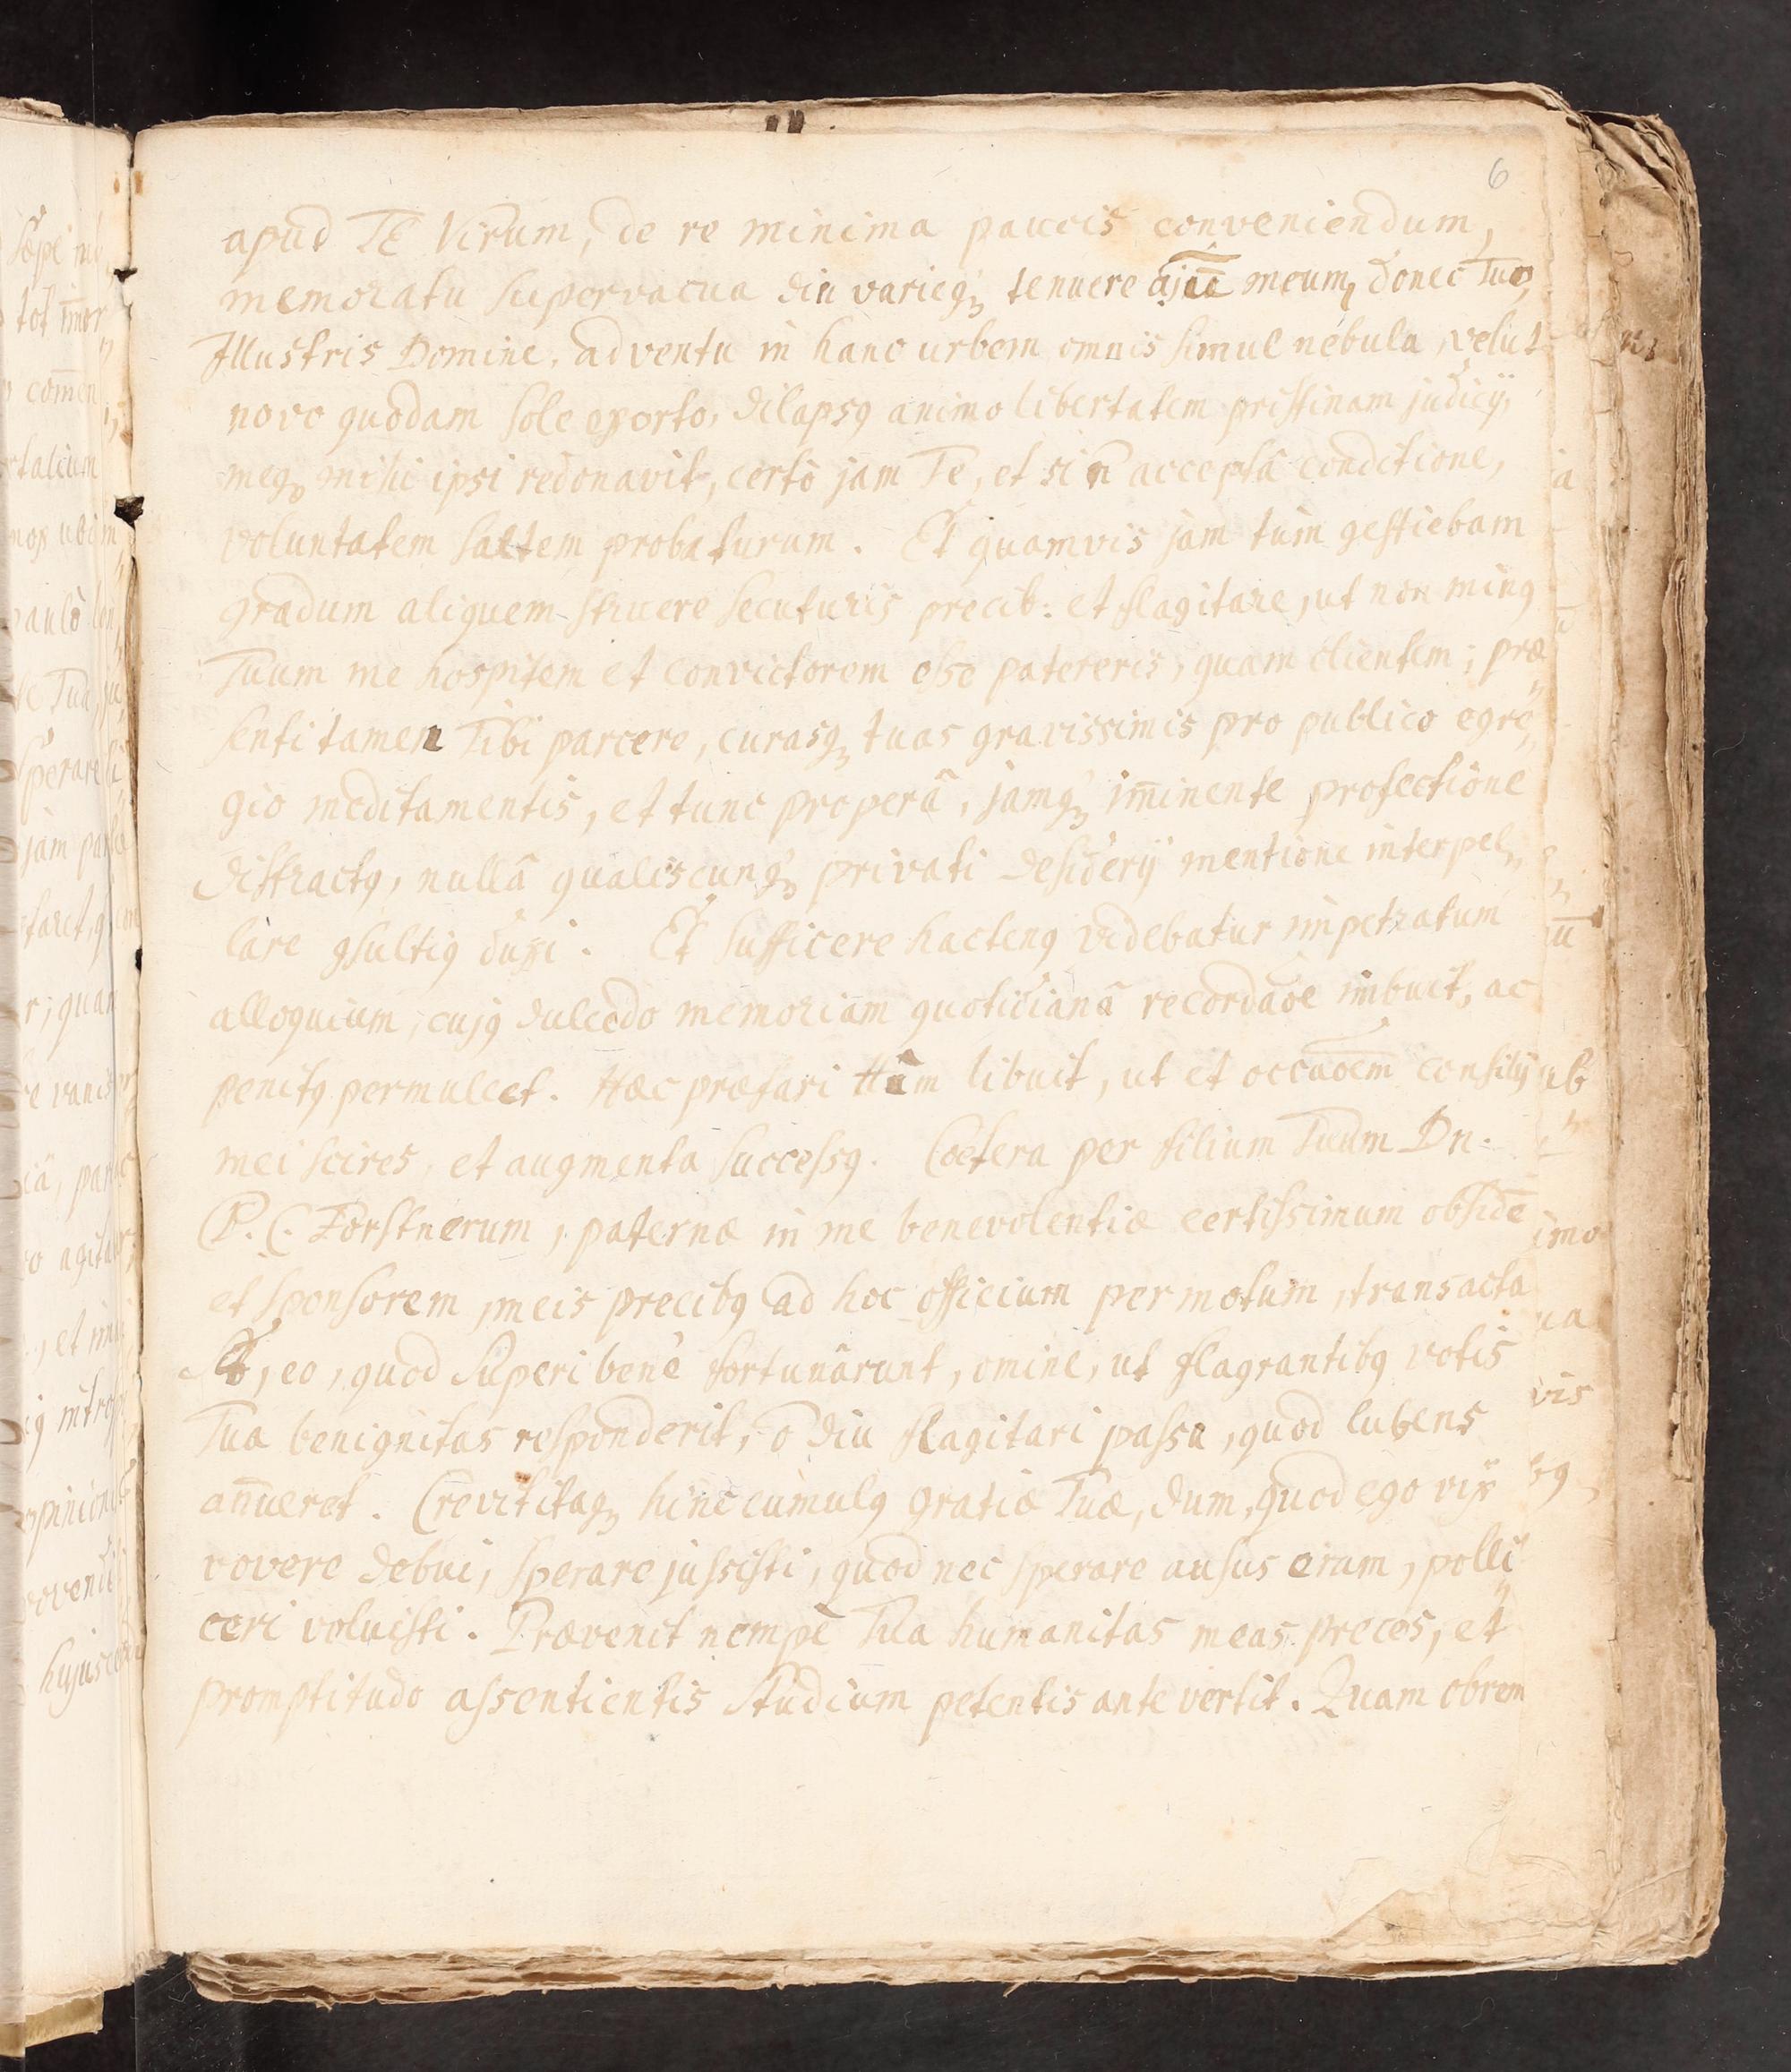 6
apud TE Virum, de re minima paucis conveniendum,
memoratu supervacua diu varieq́; tenuere ajūē meum, donec Tuo,
Illustris Domine, adventu in hanc urbem omnis simul nebula, velut
novo quodam sole exorto, dilapsꝰ animo libertatem pristinam judicij,
meq; mihi ipsi redonavit, certò jam Te, et si n̄ acceptâ conditione,
voluntatem saltem probaturum. Et quamvis jam tum gestiebam
gradum aliquem struere secuturis precib: et flagitare, ut non minꝰ
Tuum me hospitem et convictorem esse patereris, quam clientem; præ„
senti tamen Tibi parcere, curasq; tuas gravissimis pro publico egre„
gio meditamentis, et tunc properâ, jamq́; im̄inente profectione
distractꝰ, nullâ qualiscunq́; privati desiderij mentione interpel„
lare ꝯsultiꝰ duxi. Et sufficere hactenꝰ videbatur impetratum
alloquium, cujꝰ dulcedo memoriam quotidianâ recordaōe imbuit, ac
penitꝰ permulcet. Hæc præfari ttm̄ libuit, ut et occaōem consilij
mei scires, et augmenta successꝰ. Coetera per filium Tuum Dn.
P. C. Forstnerum, paternæ in me benevolentiæ certissimum obsidē
et sponsorem, meis precibꝰ ad hoc officium permotum, transacta
st̄, eo, quod Superi benè fortunârunt, omine, ut flagrantibꝰ votis
Tua benignitas responderit, ō diu flagitari passa, quod lubens
an̄ueret. Crevit itaq; hinc cumulꝰ gratiæ Tuæ, dum, quod ego vix
vovere debui, sperare jussisti, quod nec sperare ausus eram, polli„
ceri voluisti. Prævenit nempe Tua humanitas meas preces, et
promptitudo assentientis studium petentis antevertit. Quam obrem